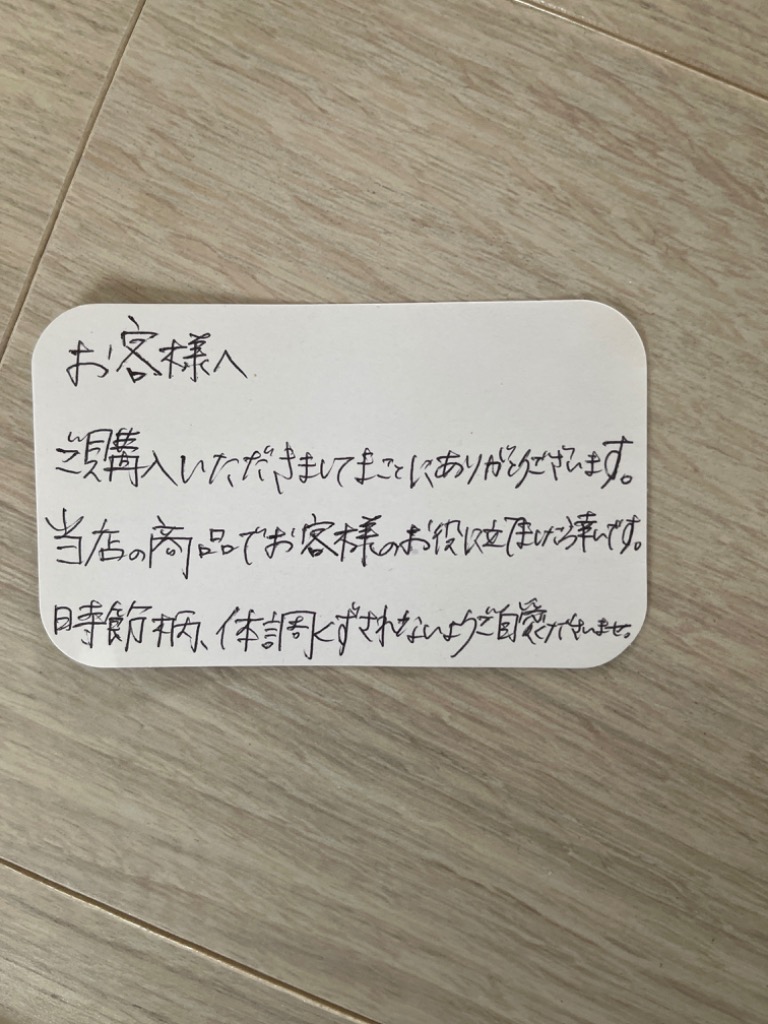 お客様へ
ご購入いただきましてまことにありがとうございます。
当店の商品でお客様のお役に立てましたら幸いです。
時節柄、体調くずされないようご自愛くださいませ。